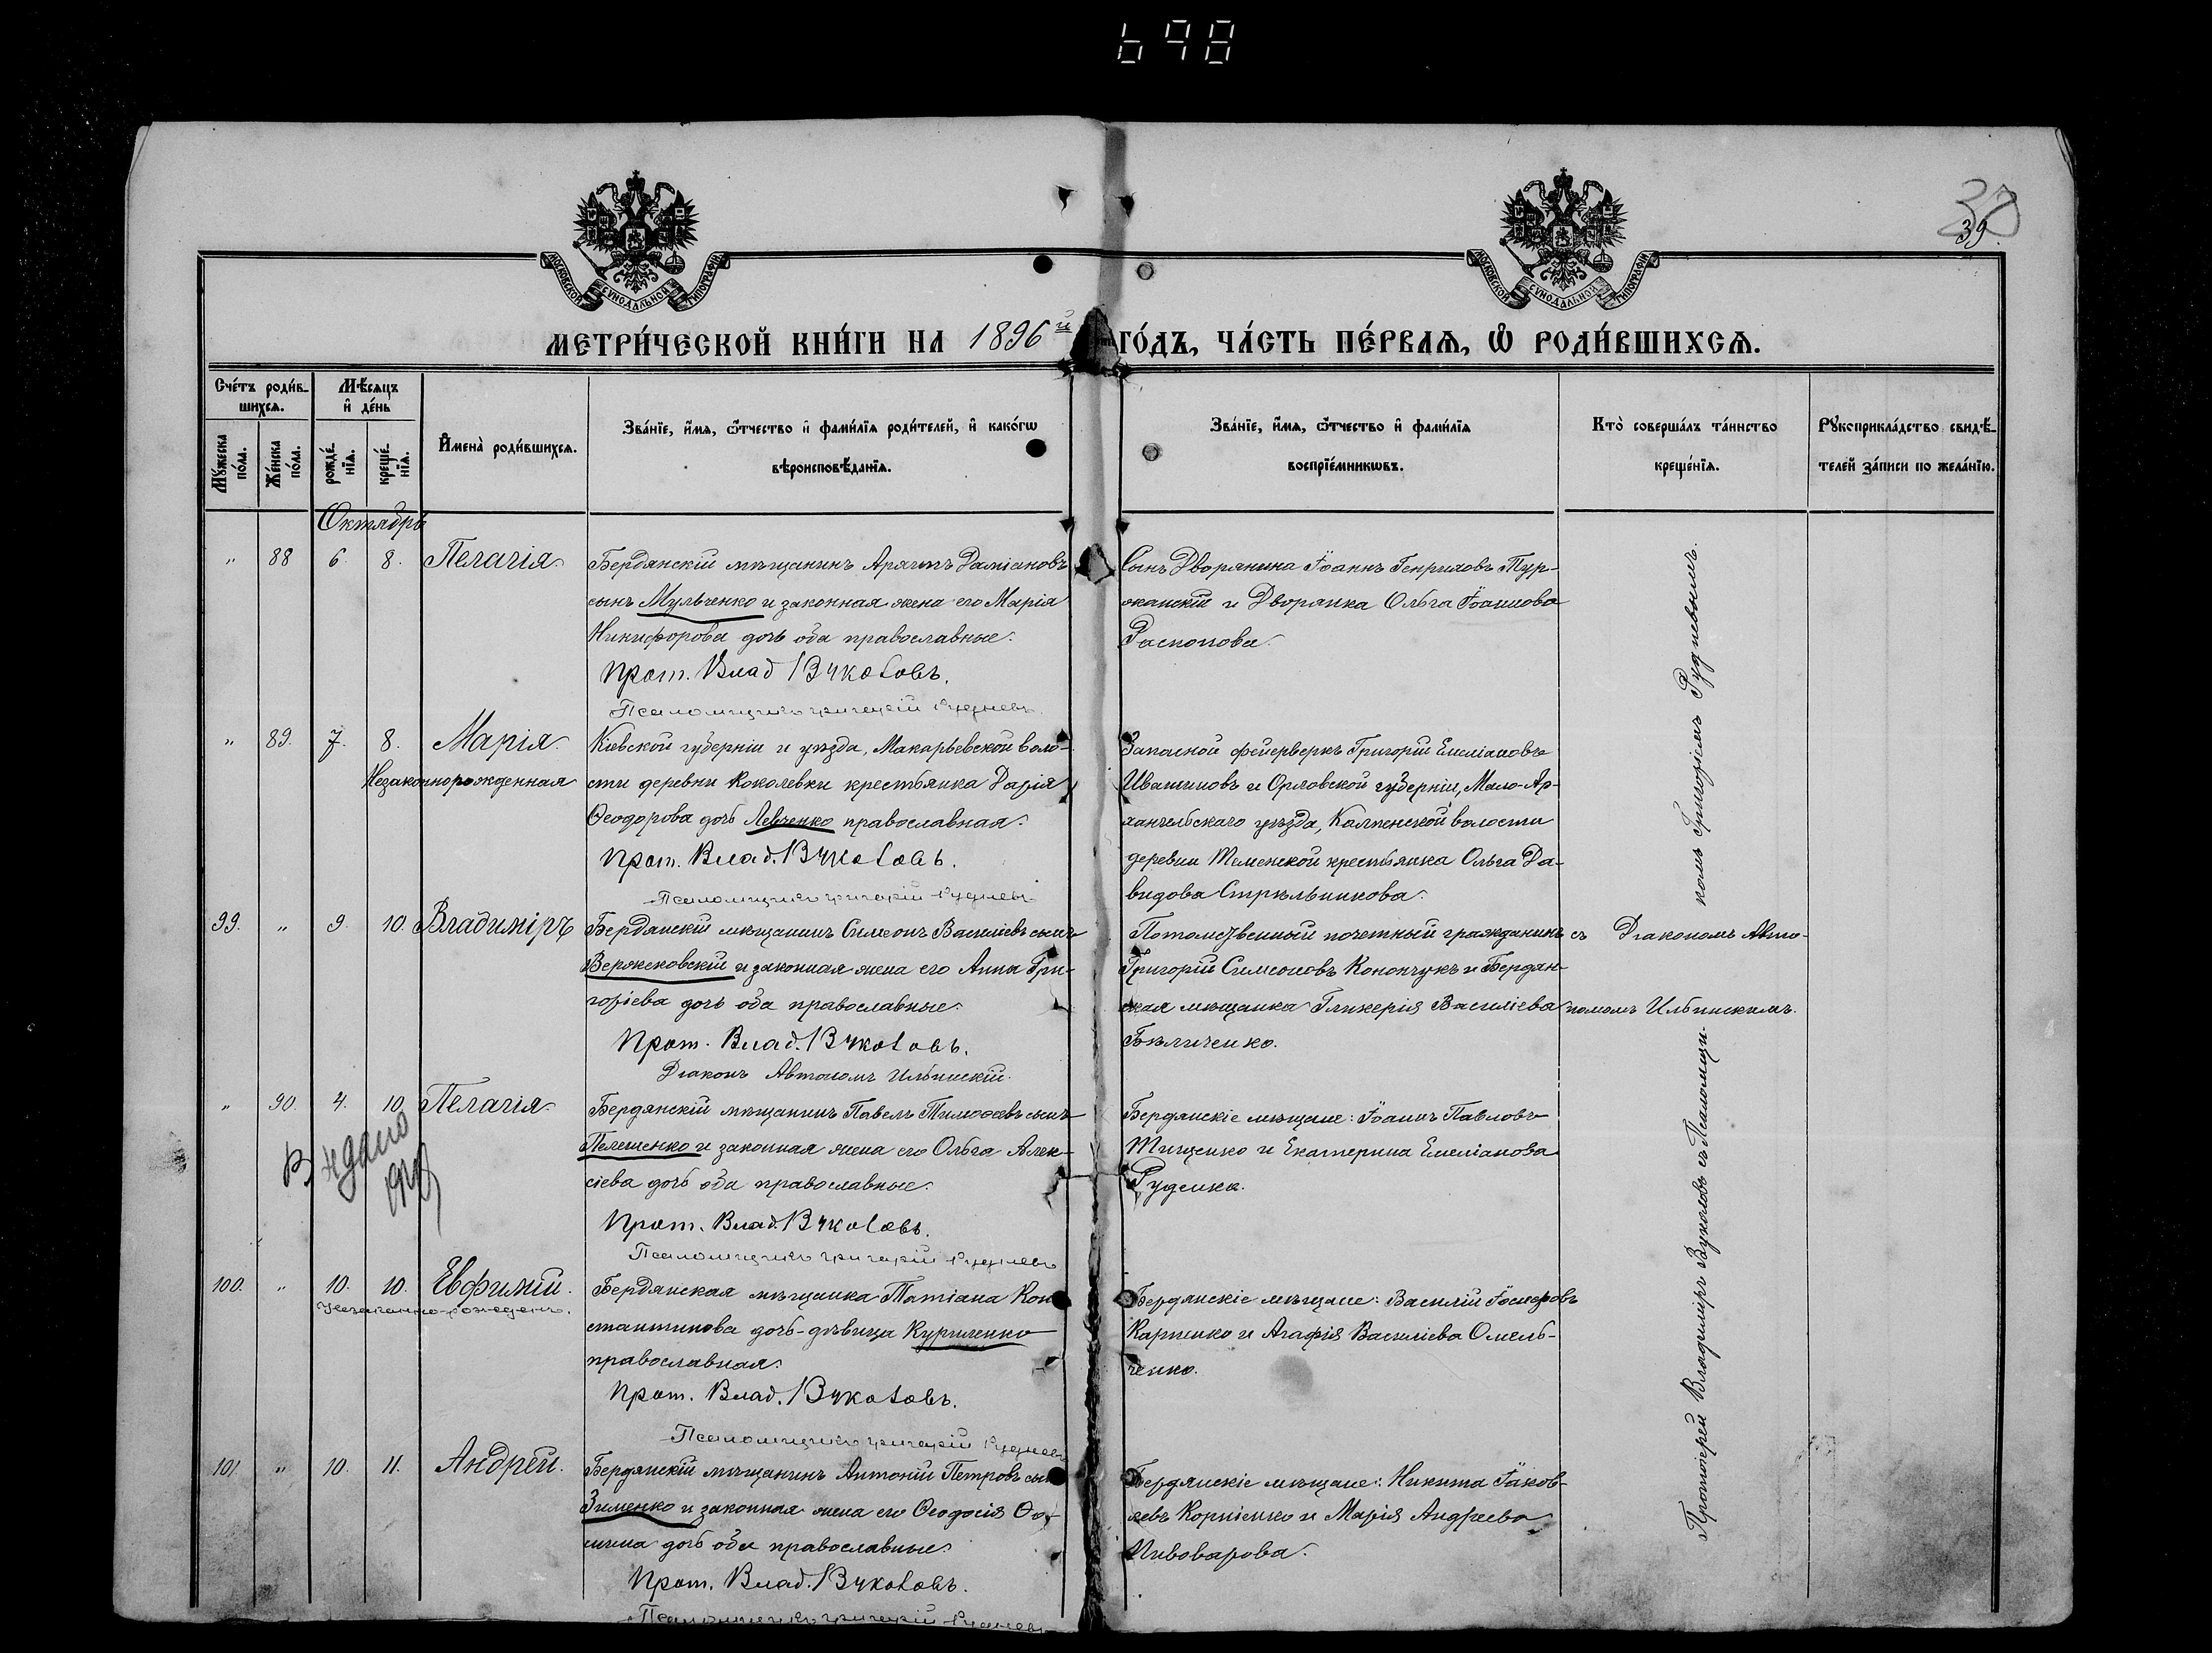 698
39
МОСКОВСКОЙ СУНОДАЛЬНОЙ ТИПОГРАФІИ
МОСКОВСКОЙ СУНОДАЛЬНОЙ ТИПОГРАФІИ
МЕТРИ́ЧЕСКОЙ КНИ́ГИ НА 1896й ГО́ДЪ, ЧА́СТЬ ПЕ́РВАѦ, Ѡ РОДИ́ВШИХСѦ.
Сче́тъ роди́в-
шихсѧ.
Мѣсѧцъ
и де́нь
Мꙋжеска по́ла.
Же́нска по́ла.
рожде́-
нїѧ.
креще́-
нїѧ.
Имена̀ роди́вшихсѧ.
Зва́нїе, и́мѧ, ѻ́тчество и фами́лїѧ роди́телей, и како́гѡ
вѣроисповѣ́данїѧ.
Зва́нїе, и́мѧ, ѻ́тчество и фами́лїѧ
воспрїе́мникѡвъ.
Кто̀ соверша́лъ та́инство
креще́нїѧ.
Рꙋкоприкла́дство свидѣ́-
телей за́писи по жела́нїю.
Октябрь
" 88 6. 8. Пелагія.
Бердянскій мѣщанинъ Даміановъ
сынъ Мульченко и законная жена его Марія
Никифорова дочь оба православные.
Прот. Влад. Вуколовъ.
Псаломщикъ Григорій Рудневъ.
Сынъ Дворянина Іоаннъ Генриховъ Тур-
жанскій и Дворянка Ольга Іоаннова
Распопова.
" 89. 7. 8. Марія.
Незаконнорожденная
Кіевской губерніи и уѣзда, Макарьевской воло-
сти деревни Коколевки крестьянка Дарія
Ѳеодорова дочь Левченко православная.
Прот. Влад. Вуколовъ.
Псаломщикъ Григорій Рудневъ.
Запасной фейерверкъ Григорій Емеліановъ
Ивашиновъ и Орловской губерніи, Мало-Ар-
хангельскаго уѣзда, волости
деревни крестьянка Ольга Да-
видова Стрѣльникова.
99. " 9. 10. Владиміръ
Бердянскій мѣщанинъ Симеонъ Василіевъ сынъ
Вержековскій и законная жена его Анна Гри-
горіева дочь оба православные.
Прот. Влад. Вуколовъ.
Діаконъ Автономъ Ильинскій.
Потомственный почетный гражданинъ
Григорій Симеоновъ Конончукъ и Бердян-
ская мѣщанка Гликерія Василіева
Бѣличенко.
съ Діакономъ Авто-
номомъ Ильинскимъ.
" 90. 4. 10. Пелагія.
Выдано
Бердянскій мѣщанинъ Павелъ Тимоѳеевъ сынъ
Пелешенко и законная жена его Ольга Алек-
сіева дочь оба православные.
Прот. Влад. Вуколовъ.
Псаломщикъ Григорій Рудневъ
Бердянскіе мѣщане: Іоаннъ Павловъ
Тищенко и Екатерина Емеліанова
Руденка.
100. " 10. 10. Евфимій.
Незаконно-рожденъ.
Бердянская мѣщанка Татіана Кон-
стантинова дочь-дѣвица Куриленко
православная.
Прот. Влад. Вуколовъ.
Псаломщикъ Григорій Рудневъ
Бердянскіе мѣщане: Василій Іосифовъ
Карпенко и Агафія Василіева Омель-
ченко.
101. " 10. 11. Андрей.
Бердянскій мѣщанинъ Антоній Петровъ сынъ
Зименко и законная жена его Ѳеодосія Ѳо-
мина дочь оба православные.
Прот. Влад. Вуколовъ.
Псаломщикъ Григорій Рудневъ
Бердянскіе мѣщане: Никита Іаков-
левъ Корніенко и Марія Андреева
Пивоварова.
Протоіерей Владиміръ Вуколовъ съ Псаломщи-
комъ Григоріемъ Рудневымъ.